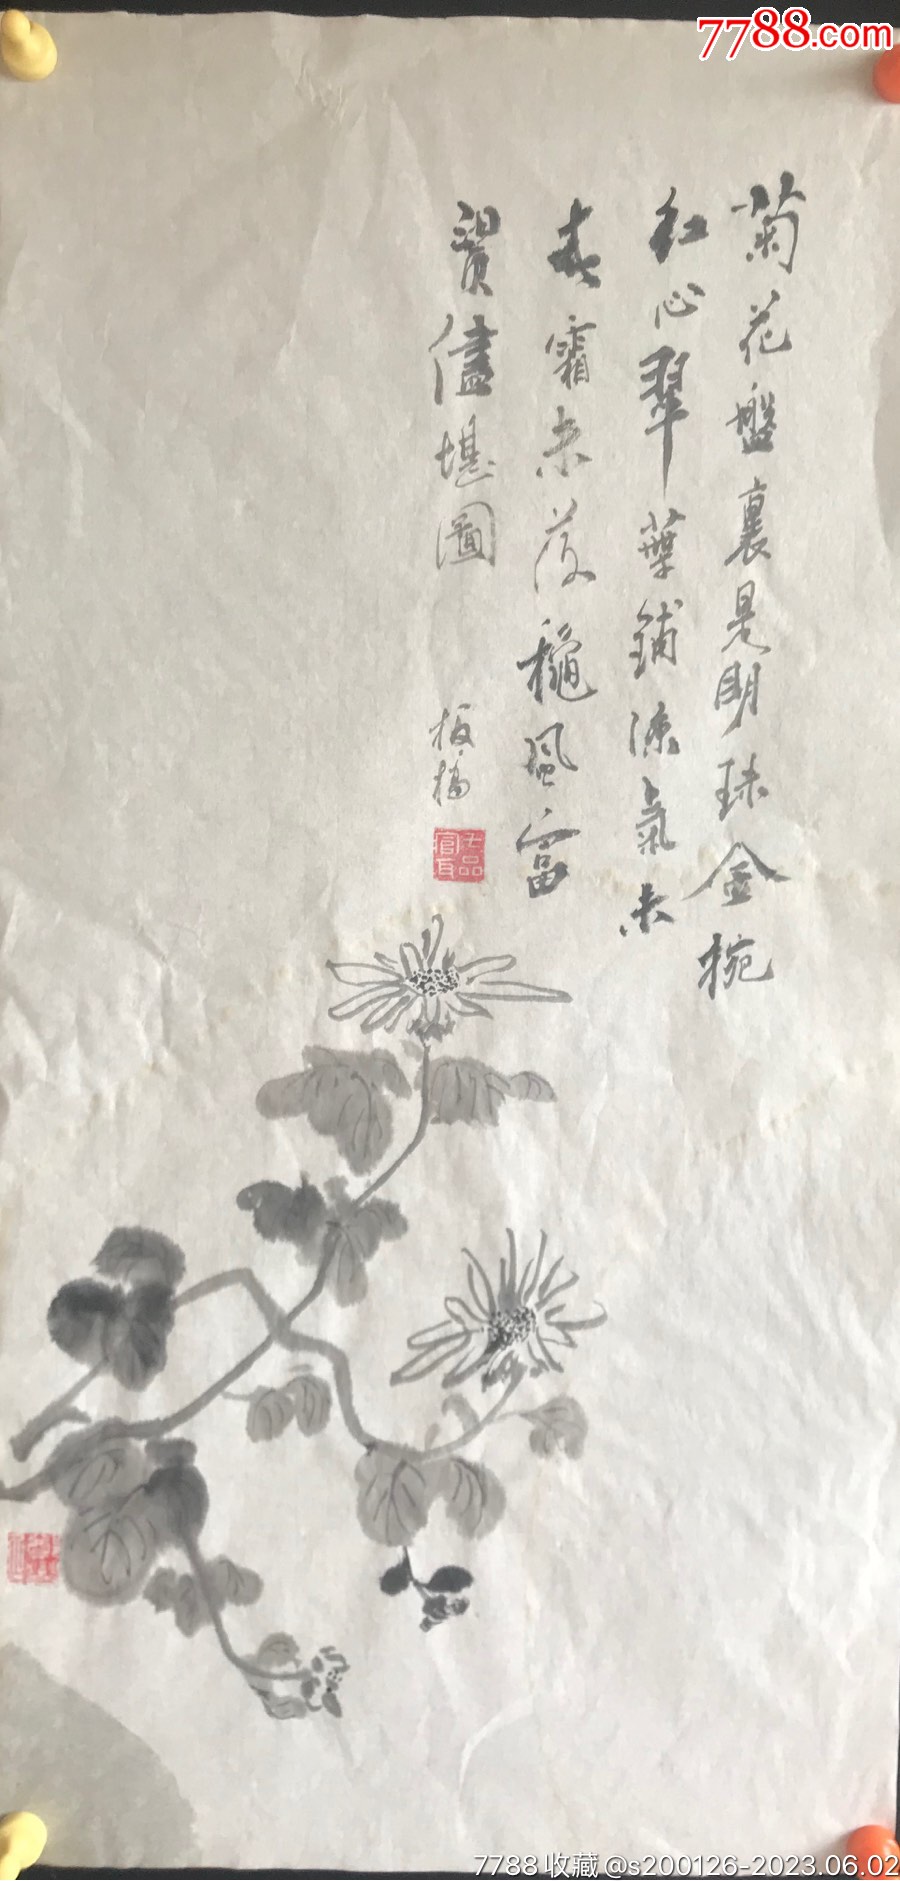 7788.com
菊花盤裏是明珠金椀
紅心翠葉鋪涼氣未
來霜未落穐風富
貴儘堪圖
板橋
七品官耳
7788收藏@s200126-2023.06.02